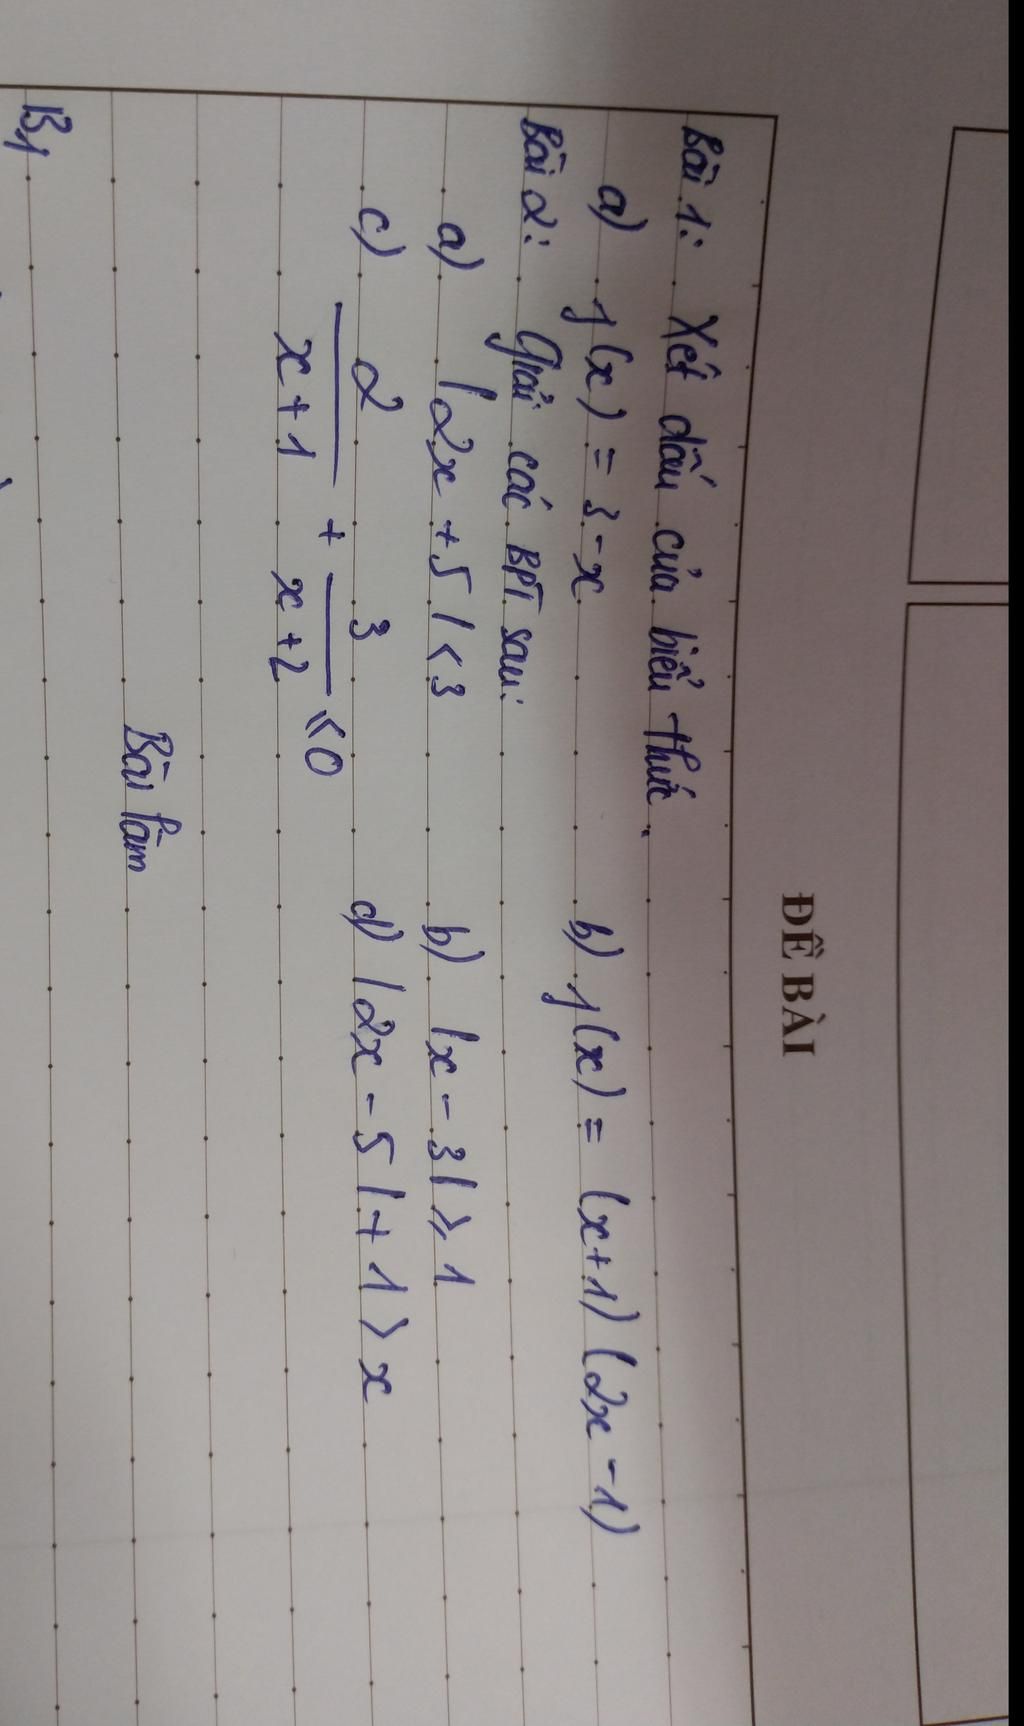 ĐỀ BÀI
Bài 1: Xét dấu của biểu thức.
a) f(x) = 3 - x b) f(x) = (x+1) (2x - 1)
Bài 2: Giải các BPT sau:
a) |2x + 5| < 3 b) |x - 3| ⩾ 1
c) 2/(x+1) + 3/(x+2) ⩽ 0 d) |2x - 5| + 1 > x
Bài làm
B1